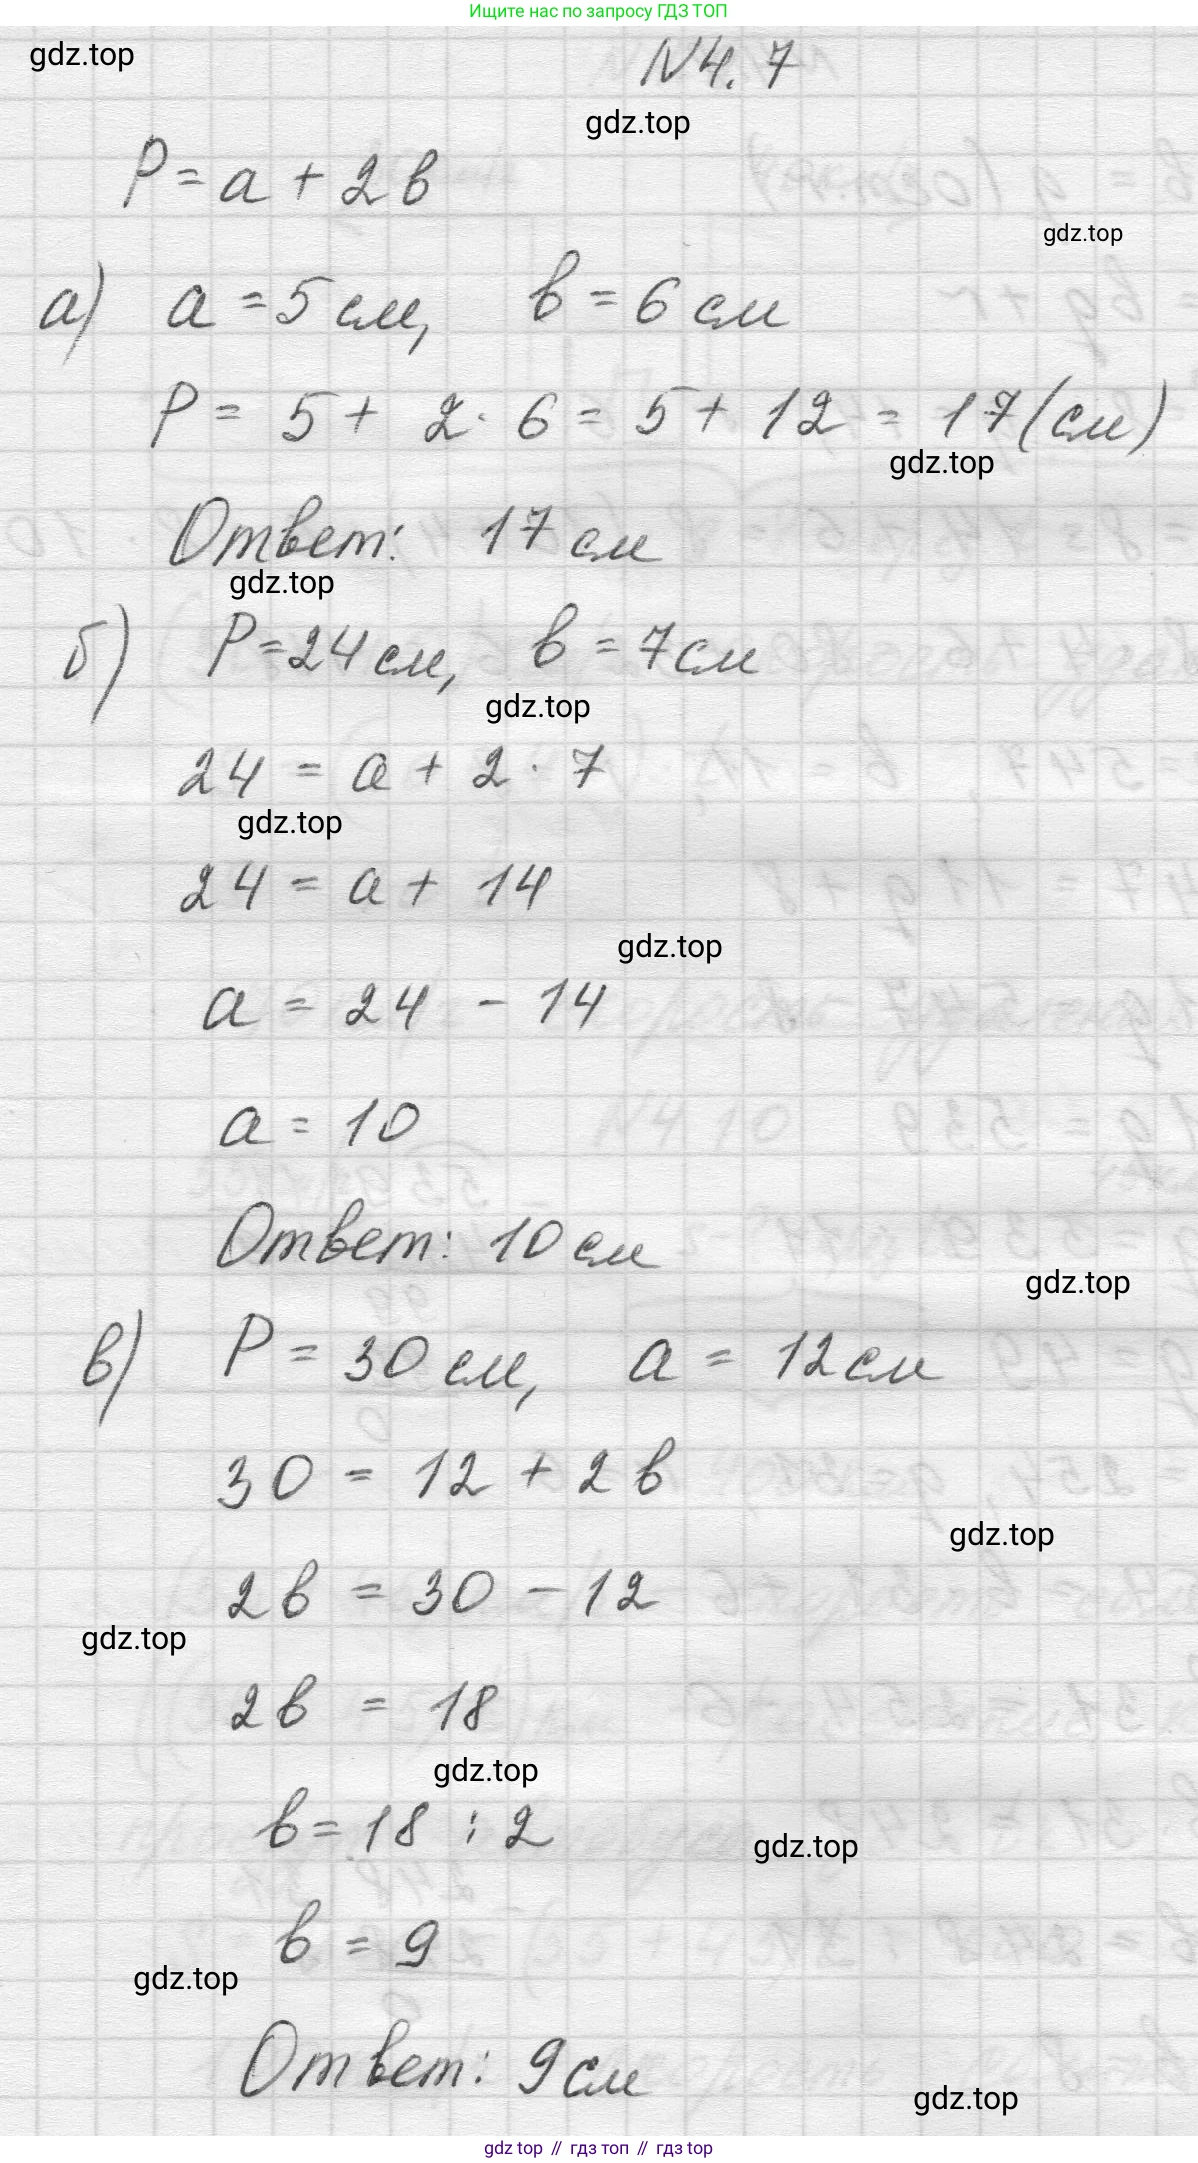 Ищите нас по запросу ГДЗ ТОП
gdz.top
N4.7
gdz.top
P = a + 2в
gdz.top
а) a = 5 см, в = 6 см
P = 5 + 2 · 6 = 5 + 12 = 17 (см)
gdz.top
Ответ: 17 см
gdz.top
б) P = 24 см, в = 7 см
gdz.top
24 = a + 2 · 7
gdz.top
24 = a + 14
gdz.top
a = 24 - 14
a = 10
Ответ: 10 см
gdz.top
в) P = 30 см, a = 12 см
30 = 12 + 2в
gdz.top
2в = 30 - 12
gdz.top
2в = 18
gdz.top
в = 18 : 2
gdz.top
в = 9
gdz.top
Ответ: 9 см
gdz.top
gdz top // гдз топ // гдз top